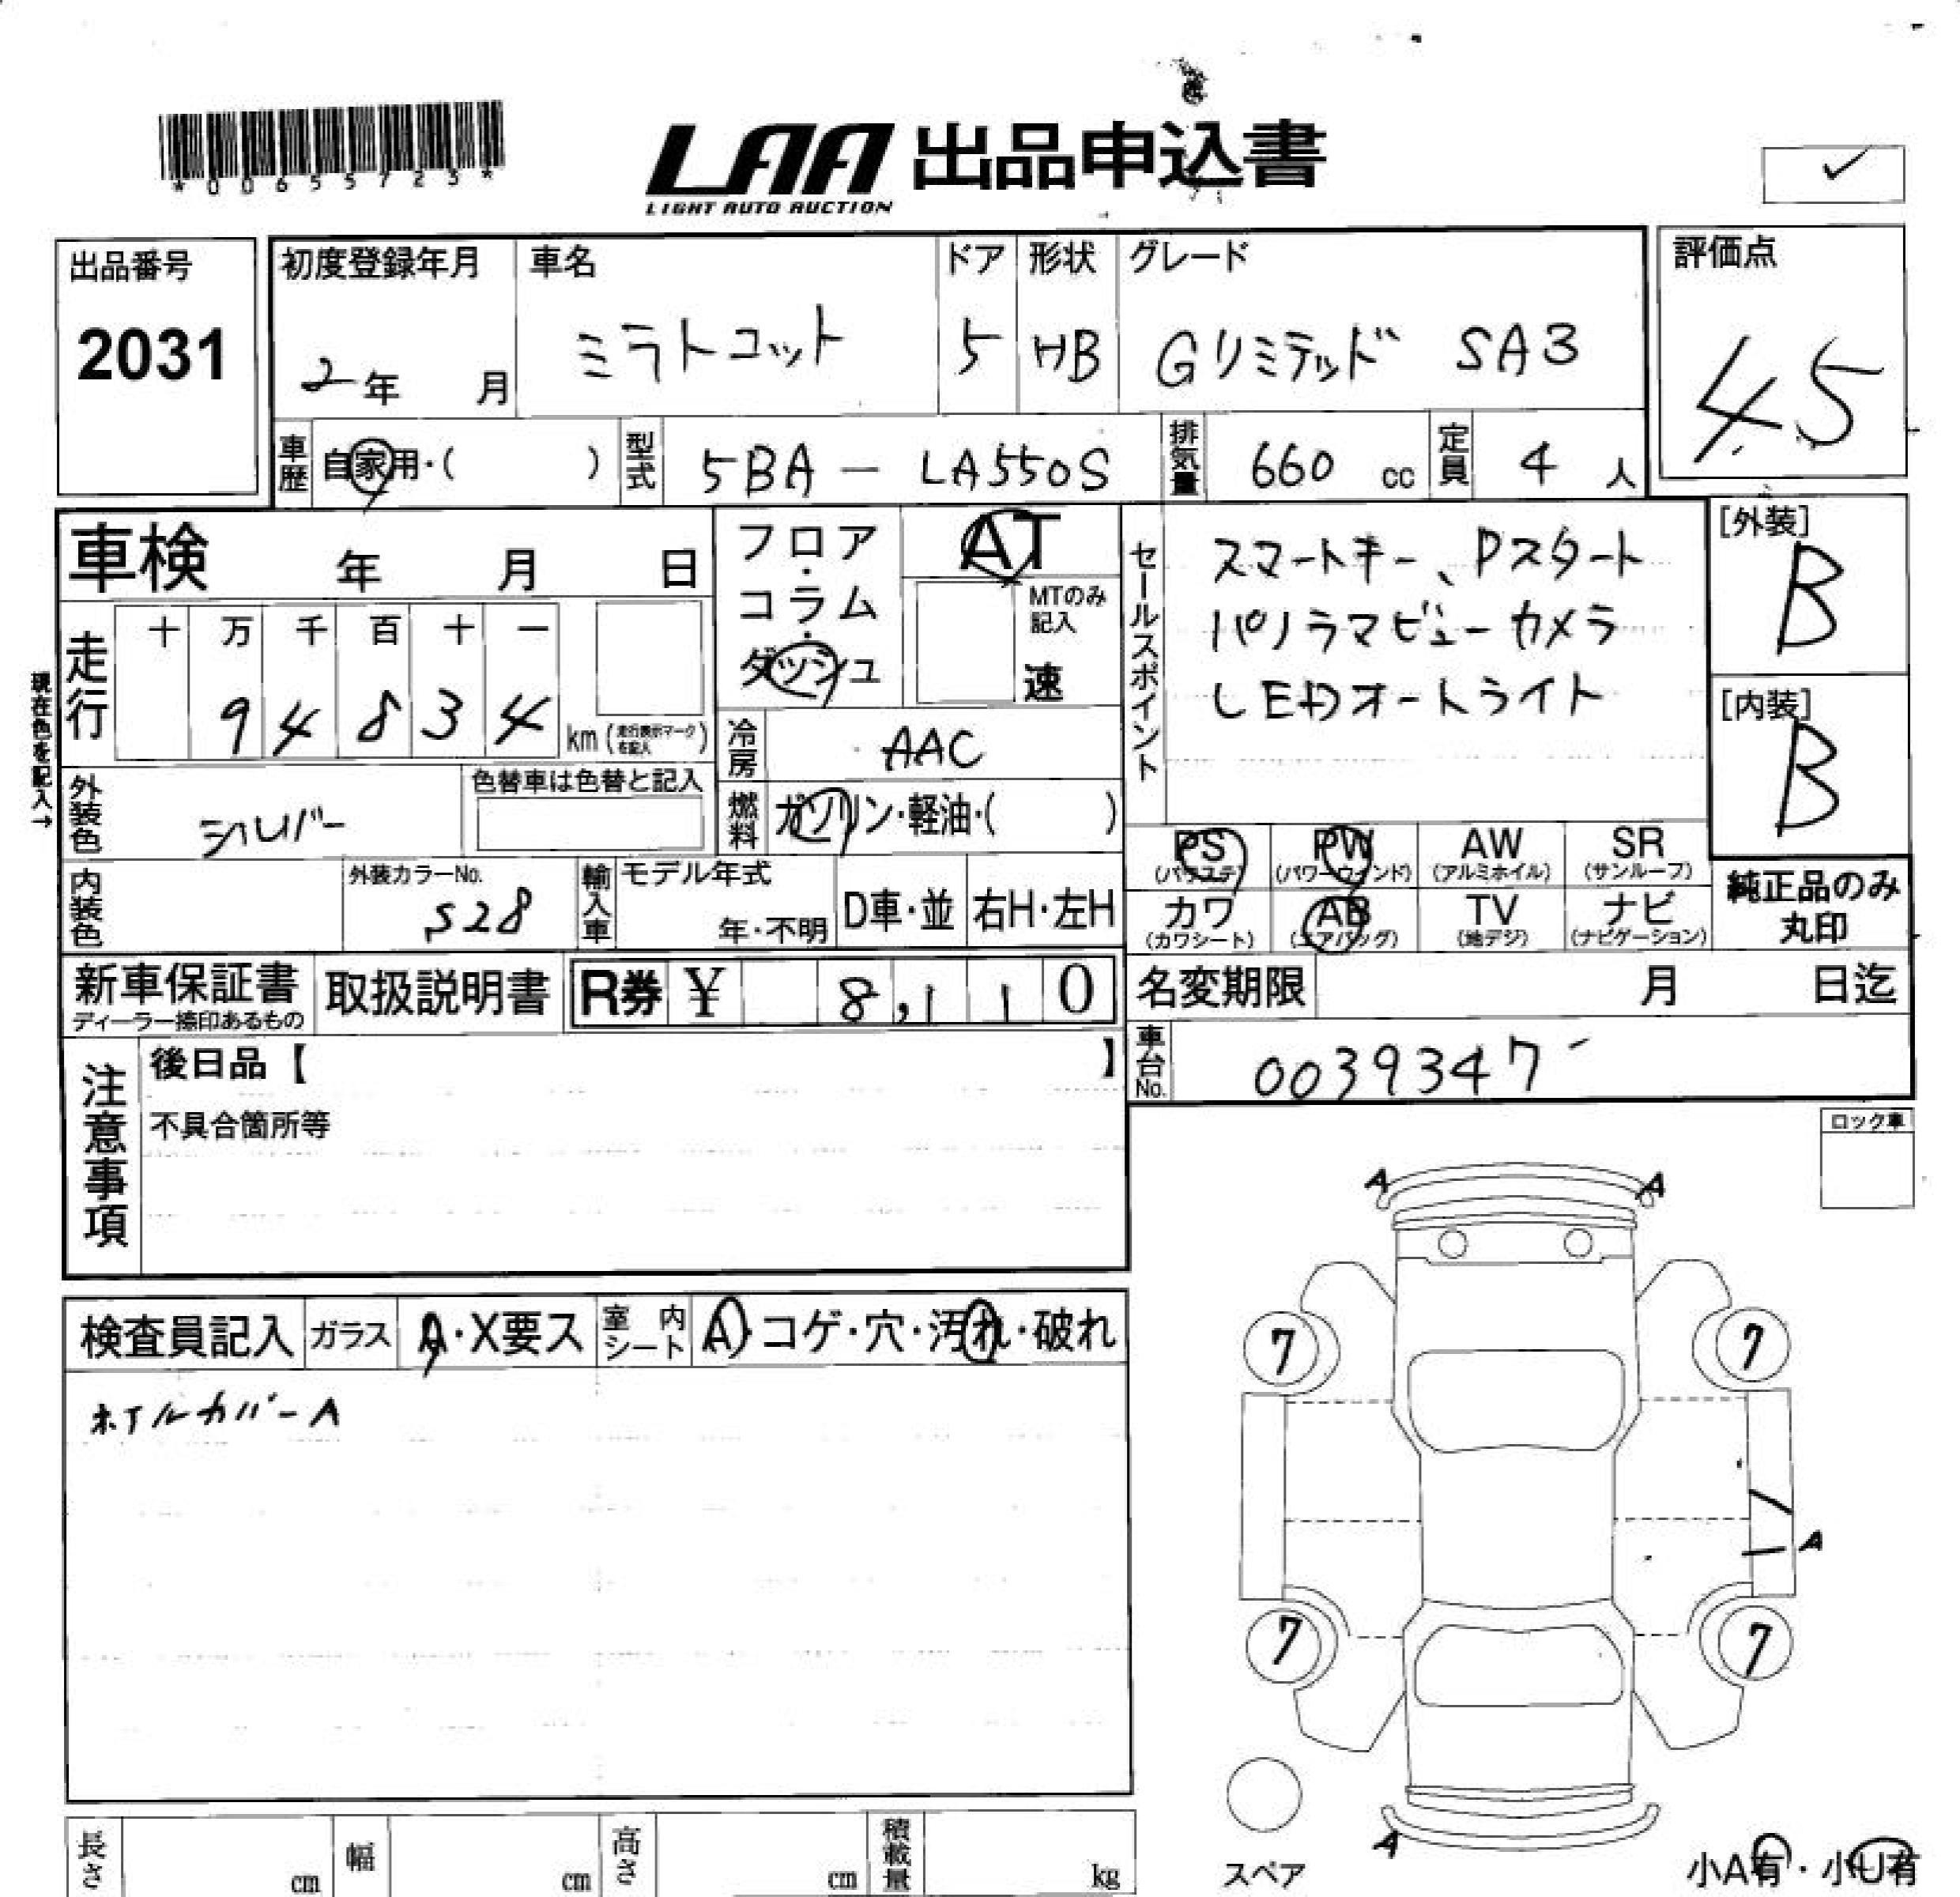 *00655723*
LAA 出品申込書
LIGHT AUTO AUCTION
✓
出品番号
2031
初度登録年月
2年 月
車名
ミラトコット
ドア
5
形状
HB
グレード
Gリミテッド SA3
評価点
4.5
車歴 自家用・( )
型式 5BA-LA550S
排気量 660 cc
定員 4 人
車検 年 月 日
フロア・コラム・ダッシュ
AT
MTのみ記入
速
セールスポイント
スマートキー、Pスタート
パノラマビューカメラ
LEDオートライト
[外装]
B
[内装]
B
現在色を記入→
走行
十 万 千 百 十 一
9 4 8 3 4 km (走行表示マークを記入)
冷房 AAC
外装色 シルバー
色替車は色替と記入
燃料 ガソリン・軽油・( )
PS (パワステ) PW (パワーウインド) AW (アルミホイル) SR (サンルーフ)
カワ (カワシート) AB (エアバッグ) TV (地デジ) ナビ (ナビゲーション)
純正品のみ丸印
内装色
外装カラーNo.
S28
輸入車
モデル年式
年・不明
D車・並
右H・左H
新車保証書
ディーラー捺印あるもの
取扱説明書
R券 ¥ 8,110
名変期限 月 日迄
車台No. 0039347
注意事項
後日品【 】
不具合箇所等
ロック車
検査員記入 ガラス A・X要ス 室内シート A・コゲ・穴・汚れ・破れ
ホイルカバーA
A A
7 7
A
7 7
A
スペア
小A有・小U有
長さ cm 幅 cm 高さ cm 積載量 kg